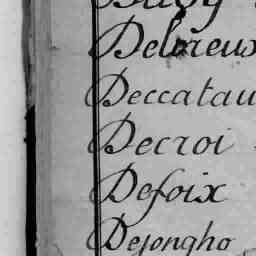 Delvreux
Deccatau
Decroi
Defoix
Dejongho